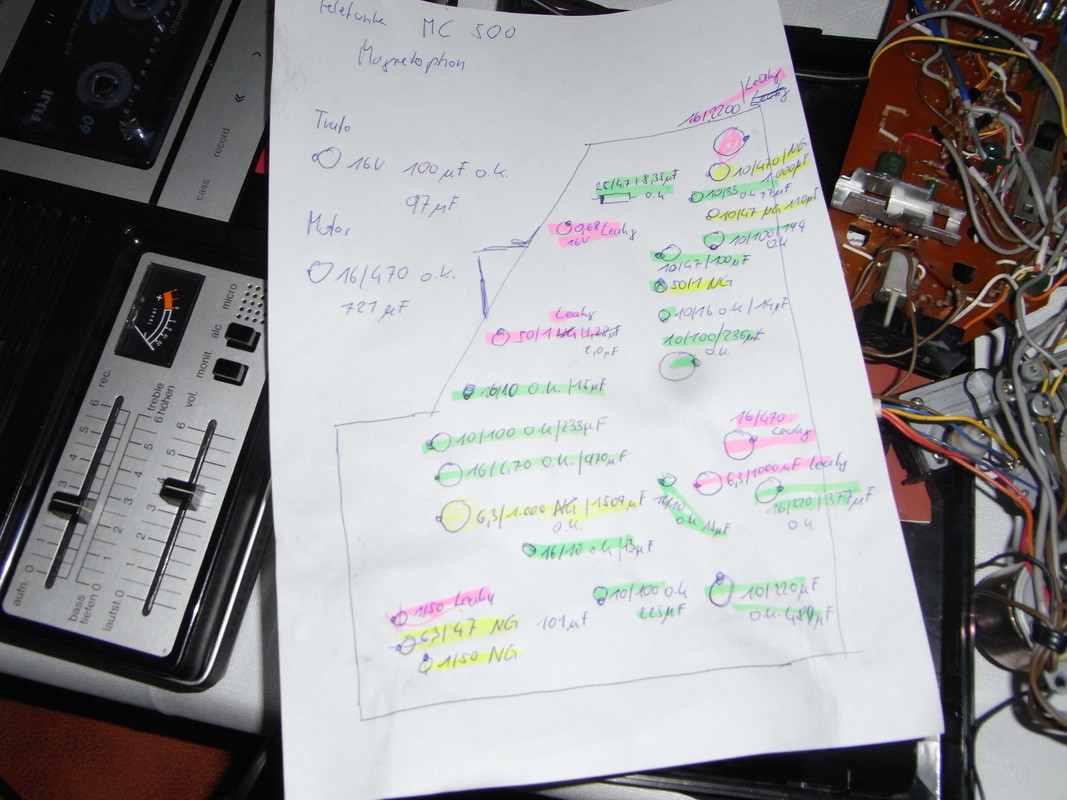 MC 500
Magnetophon
Trafo
16V 100µF o.k.
97µF
Motor
16/470 o.k.
721µF
16/2200 Leaky
10/470/NG
1.000µF
25/4,7/8,33µF
o.k
10/33 o.k
10/47 NG 110µF
0,68 Leaky
16V
10/100/144
o.k
10/47/100µF
50/1 NG
10/16 o.k/14µF
Leaky
50/1 NG
2,0µF
10/100/236µF
o.k.
16/10 o.k./15µF
10/100 o.k/233µF
16/470
Leaky
16/4,70 o.k./970µF
6,3/1000µF Leaky
16/220/377µF
o.k
6,3/1.000 NG/1509µF
o.k.
16/10
o.k
16/10 o.k/13µF
1/50 Leaky
63/47 NG 101µF
1/50 NG
10/100 o.k
225µF
10/220µF
FUJI
60
cass
record
«
micro
alc
monit.
rec.
treble
höhen
vol.
6
5
4
3
2
1
0
6
5
4
3
2
1
0
aufn.
bass
tiefen
lautst.